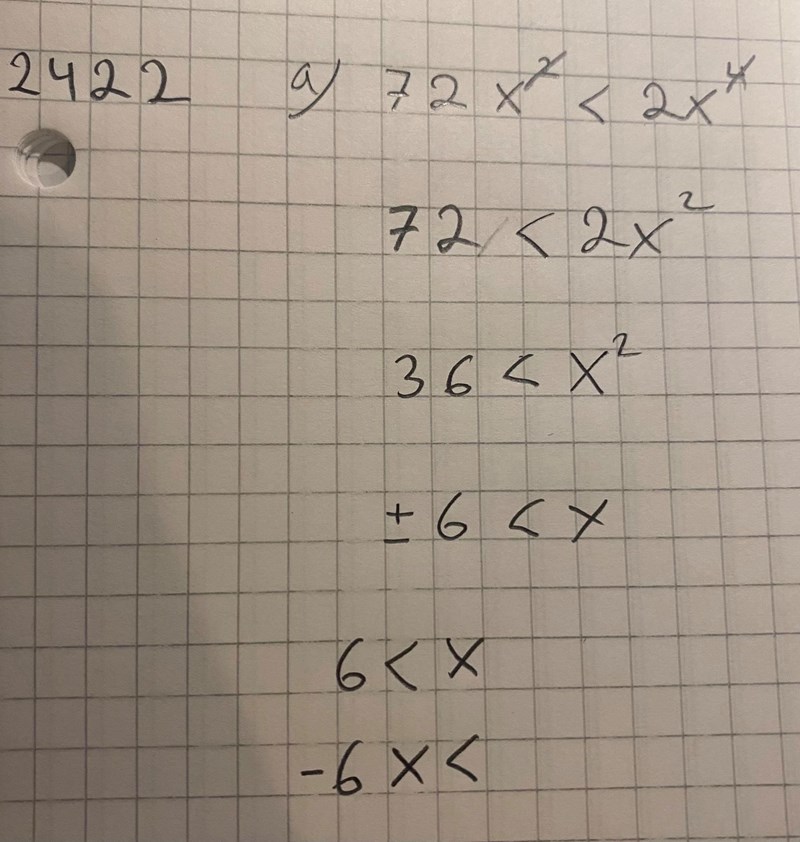 2422 a) 72x² < 2x⁴
72 < 2x²
36 < x²
± 6 < x
6 < x
-6 x <